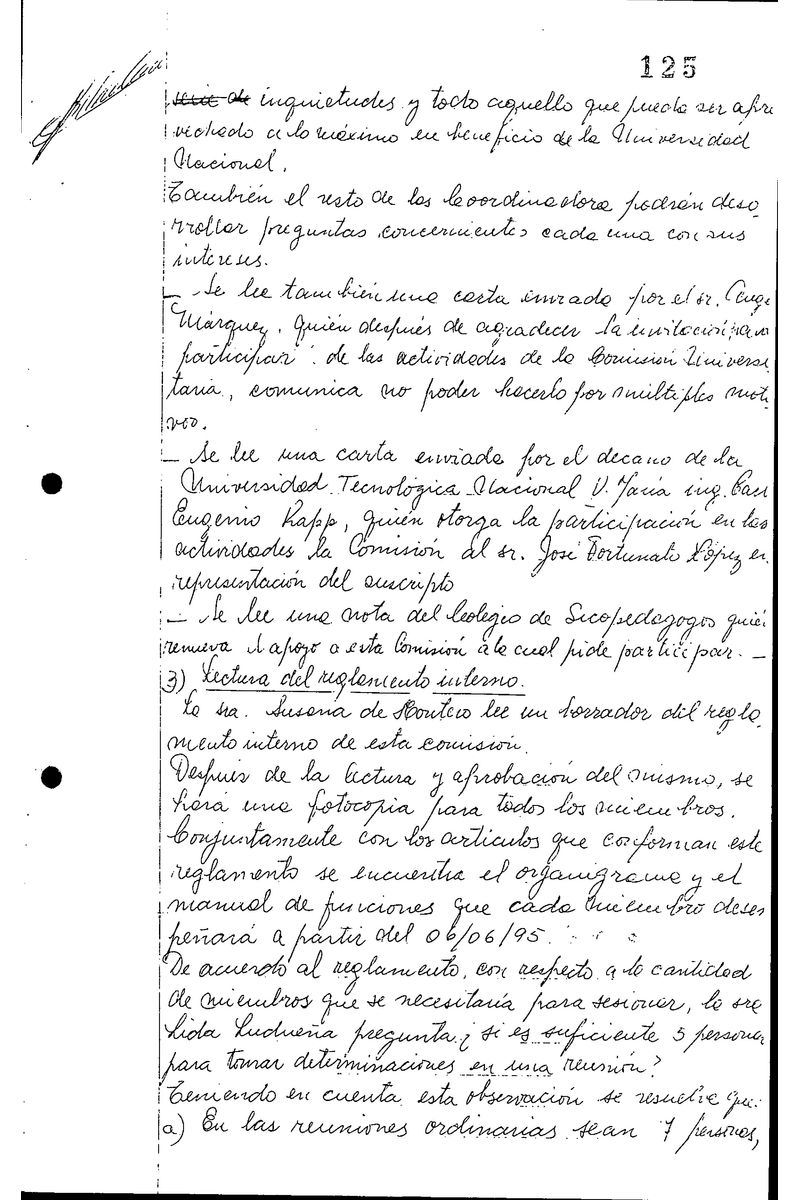 125
serie de inquietudes y todo aquello que pueda ser apro
vechado a lo máximo en beneficio de la Universidad
Nacional.
También el resto de las Coordinadora podrán desa_
rrollar preguntas concernientes cada una con sus
intereses.
_ Se lee también una carta enviada por el sr.
Márquez, quién después de agradecer la invitación para
participar de las actividades de la Comisión Universi
taria, comunica no poder hacerlo por múltiples moti
vos.
_ Se lee una carta enviada por el decano de la
Universidad Tecnológica Nacional V. María ing.
Eugenio Rapp, quién otorga la participación en las
actividades la Comisión al sr. José Fortunato López en
representación del suscripto
_ Se lee una nota del Colegio de Sicopedagogos quién
renueva el apoyo a esta Comisión a la cual pide participar. _
3) Lectura del reglamento interno.
La sra. Susana de Montero lee un borrador del regla_
mento interno de esta comisión.
Después de la lectura y aprobación del mismo, se
hará una fotocopia para todos los miembros.
Conjuntamente con los artículos que conforman este
reglamento se encuentra el organigrama y el
manual de funciones que cada miembro desem
peñará a partir del 06/06/95.
De acuerdo al reglamento, con respecto a la cantidad
de miembros que se necesitaría para sesionar, la sra
Lida Ludueña pregunta ¿ si es suficiente 5 personas
para tomar determinaciones en una reunión?
Teniendo en cuenta esta observación se resuelve que:
a) En las reuniones ordinarias sean 7 personas,